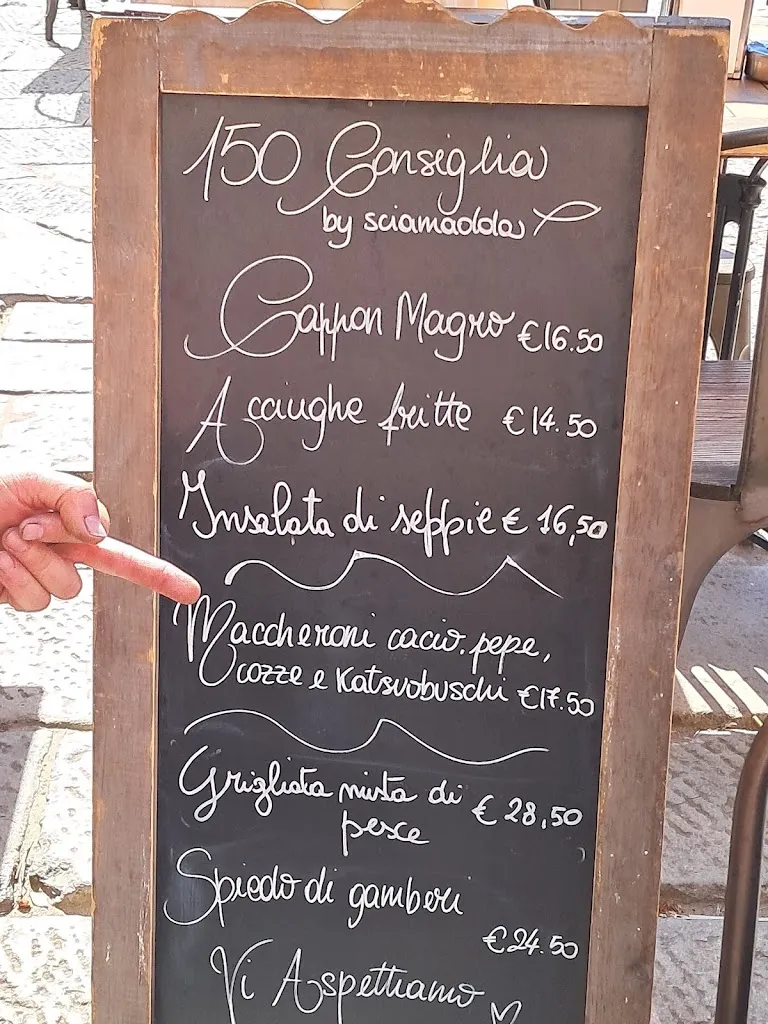 150 Consiglia
by sciamadda
Cappon Magro €16.50
Acciughe fritte €14.50
Insalata di seppie € 16,50
Maccheroni cacio. pepe,
cozze e Katsuobuschi €17.50
Grigliata mista di € 28,50
pesce
Spiedo di gamberi
€24.50
Vi Aspettiamo